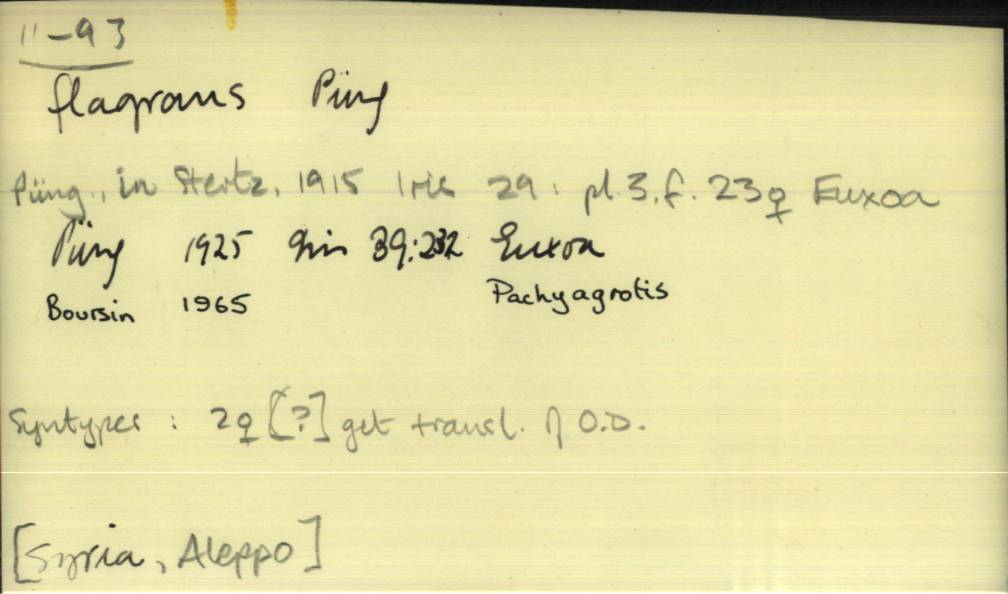 11-93
flagrans Püng
Püng., in Stertz, 1915 Iris 29: pl.3, f. 23♀ Euxoa
Püng 1925 Iris 39:232 Euxoa
Boursin 1965 Pachyagrotis
Syntypes: 2♀ [?] get transl. of O.D.
[Syria, Aleppo]